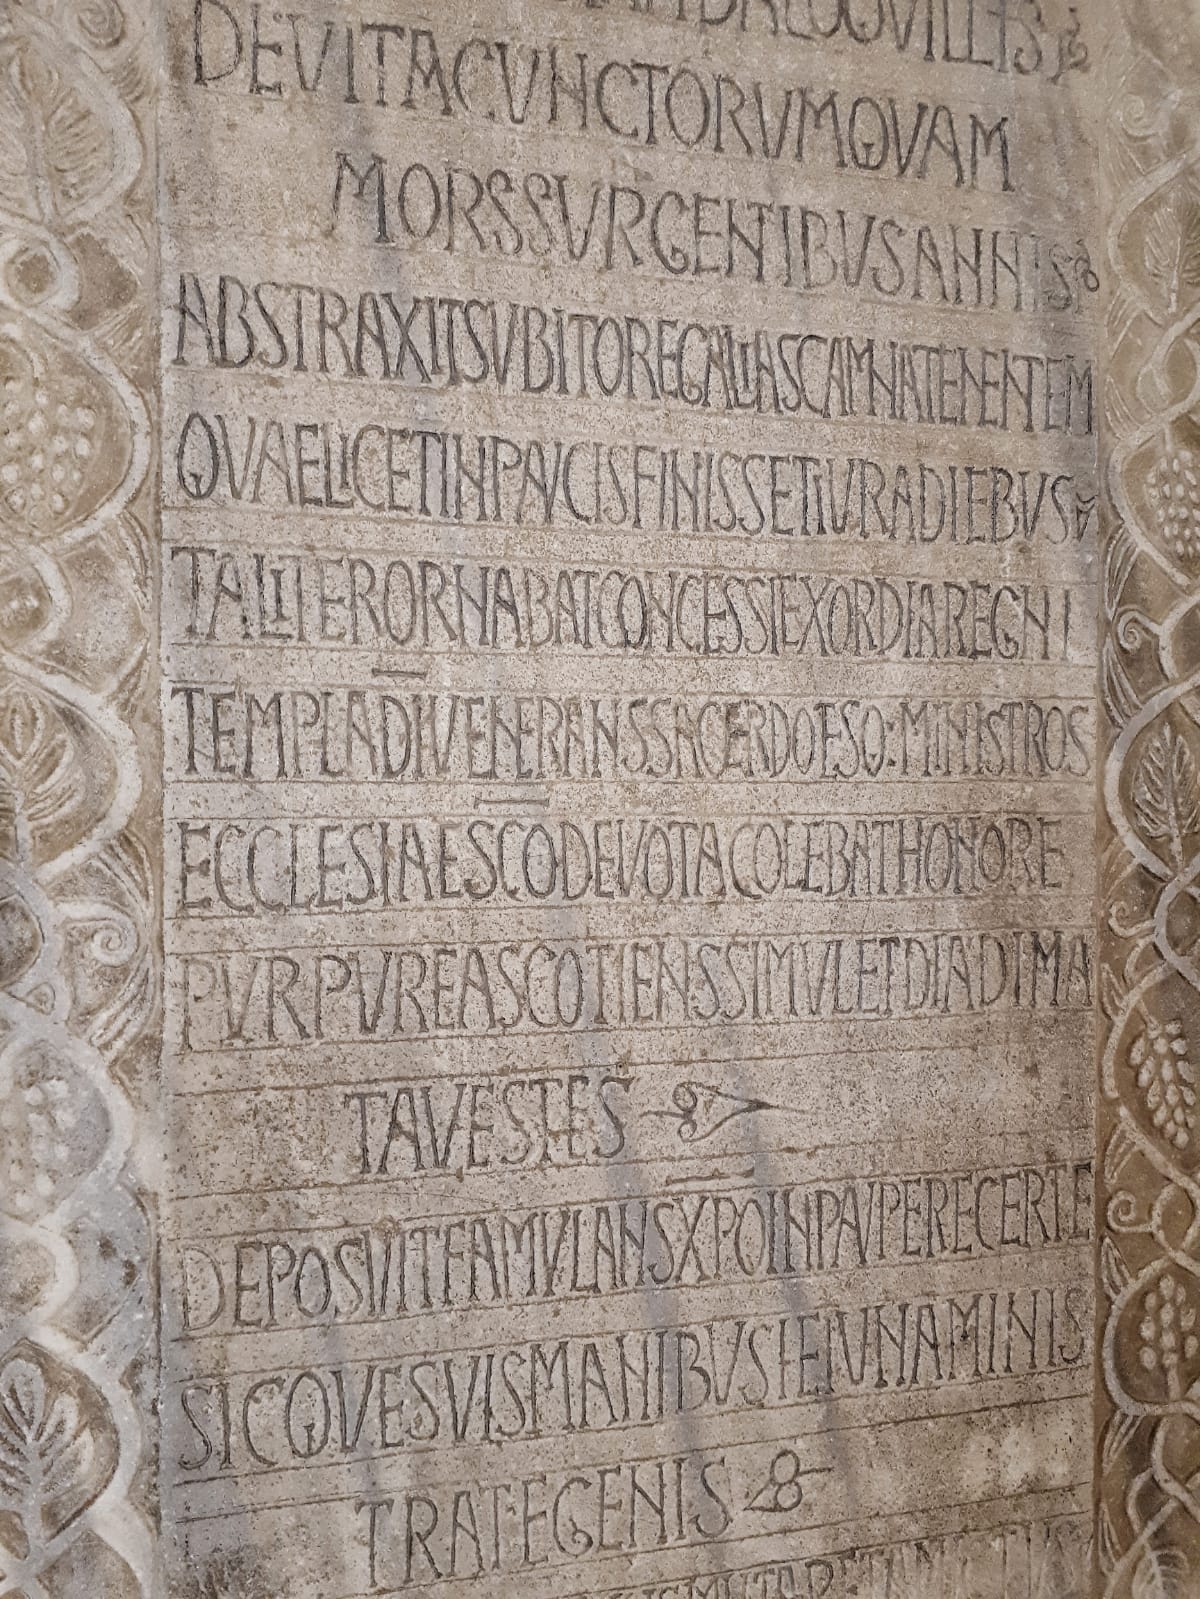 DEVITACVNCTORVMQVAM
MORSSVRGENTIBVSANNIS
ABSTRAXITSVBITOREGALIASCAMNATENENTEM
QVAELICETINPAVCISFINISSETIURADIEBVS
TALITERORNABATCONCESSIEXORDIAREGNI
TEMPLADIVENERANSSACERDOTESQ:MINISTROS
ECCLESIAESCODEVOTACOLEBATHONORE
PVRPVREASCOTIENSSIMVLETDIADIMA
TAVESTES
DEPOSVITFAMVLANSXPOINPAVPERECERTE
SICQVESVISMANIBVSIEIVNAMINIS
TRATEGENIS